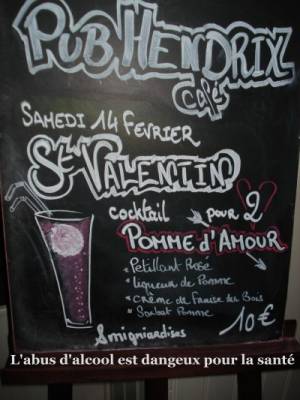 PUB HENDRIX
Cafés
SAMEDI 14 FEVRIER
St VALENTIN
cocktail pour 2
POMME d'AMOUR
• Petillant Rosé
• Liqueur de Pomme
• Crème de Fraise des Bois
• Sorbet Pomme
Smigniardises 10€
L'abus d'alcool est dangeux pour la santé